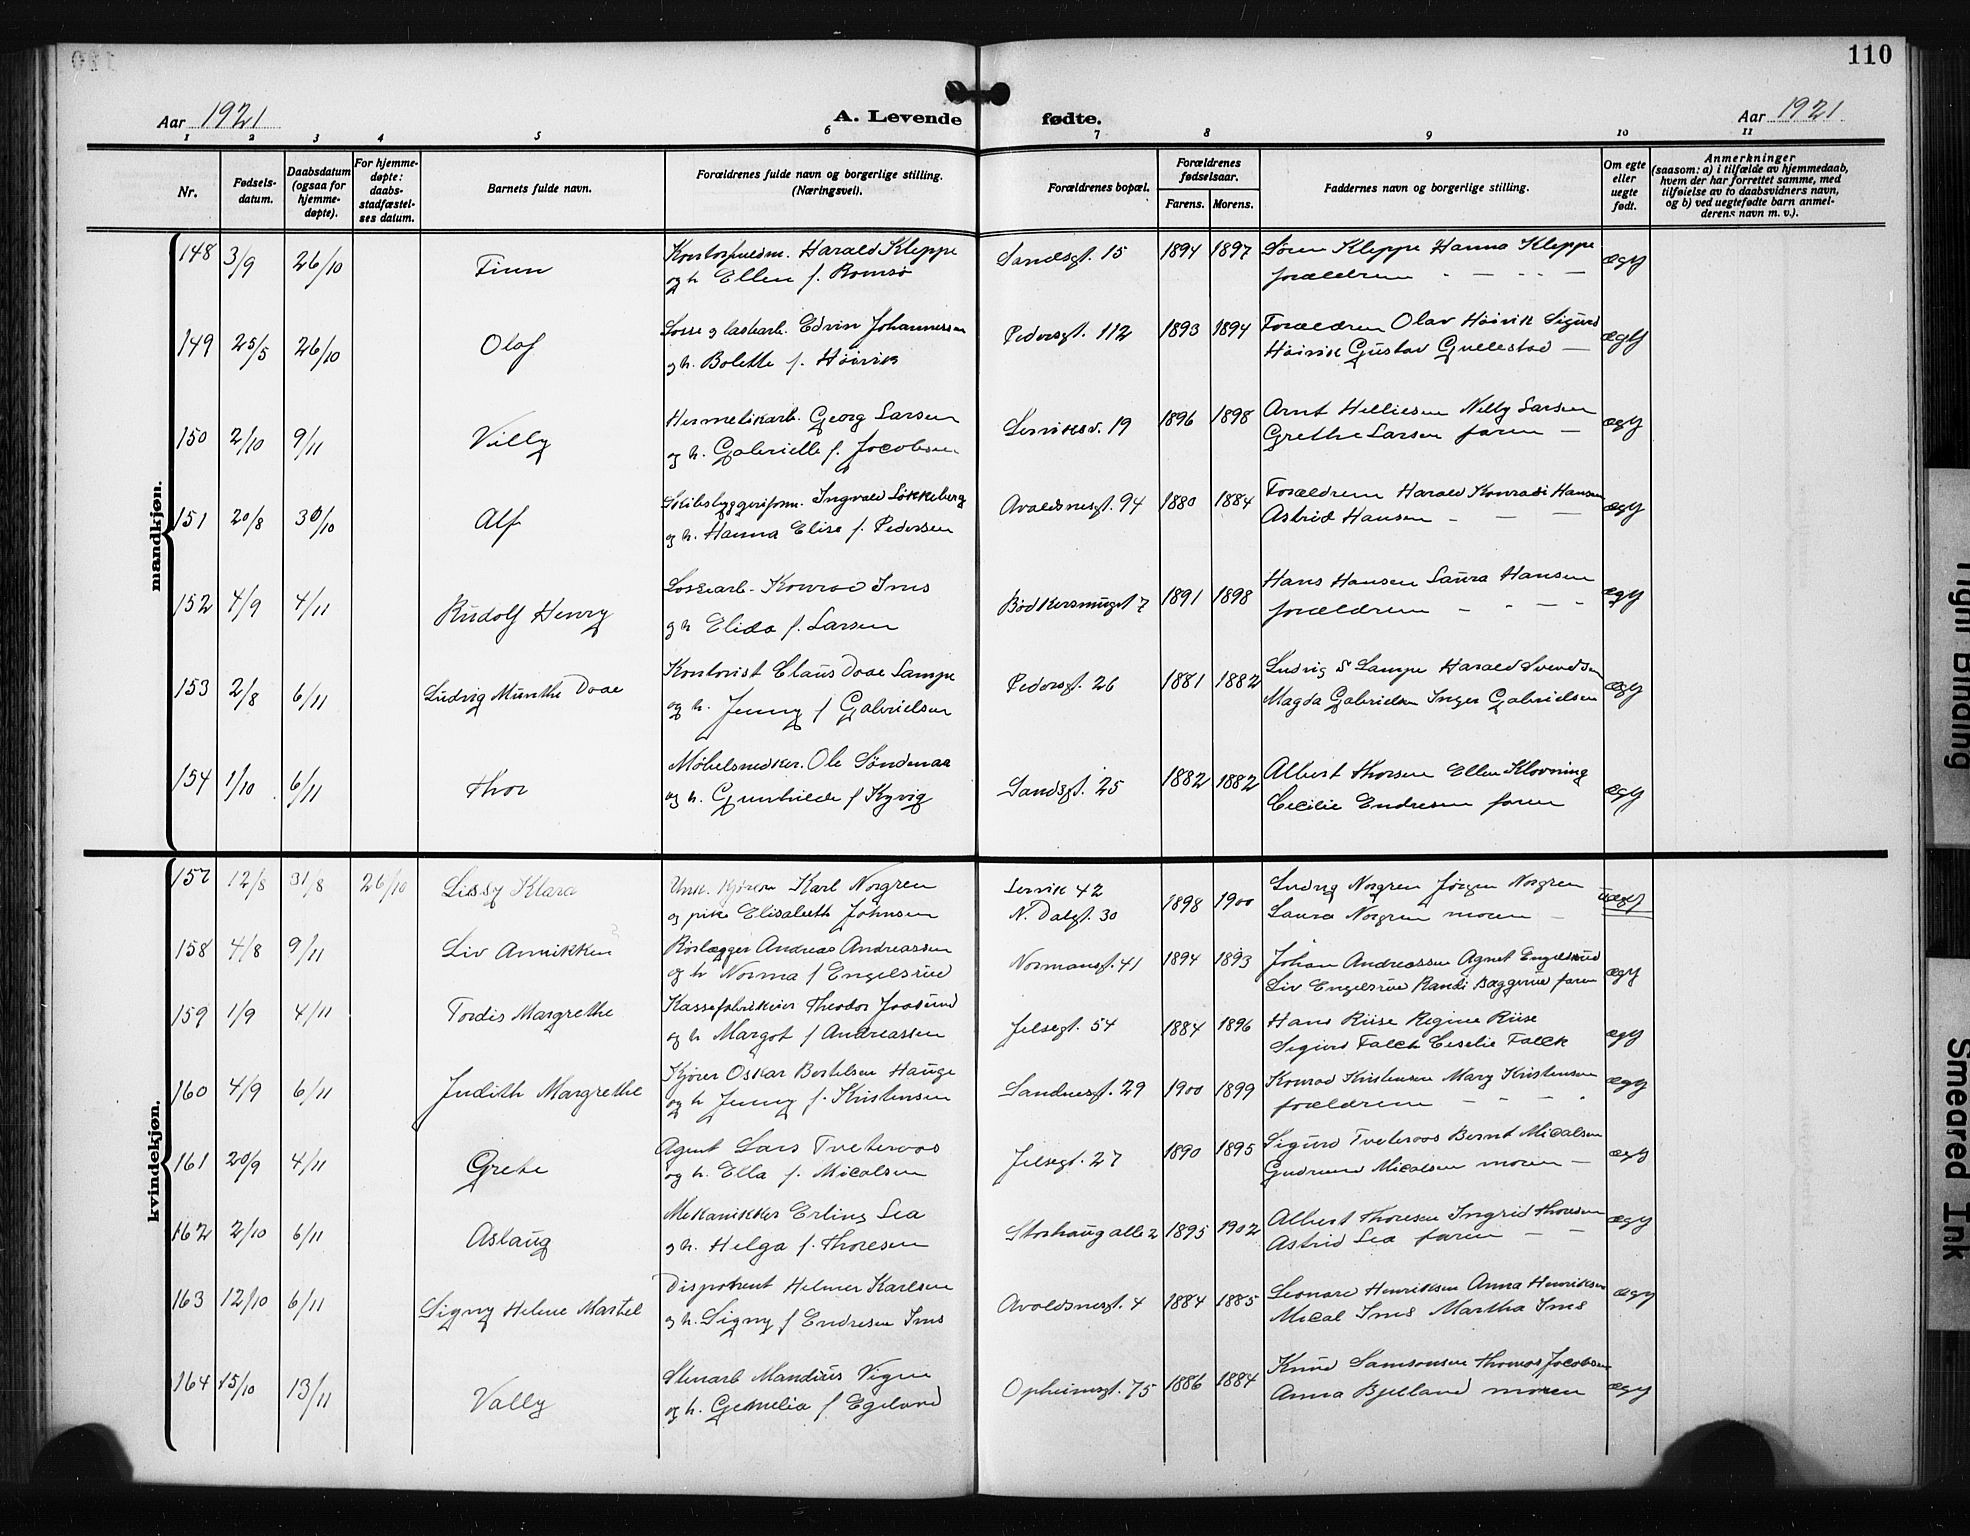 110
Aar 1921
A. Levende fødte.
Aar 1921.
1 2 3 4 5 6 7 8 9 10 11
Nr.
Fødsels-
datum.
Daabsdatum
(ogsaa for
hjemme-
døpte).
For hjemme-
døpte:
daabs-
stadfæstel-
ses datum.
Barnets fulde navn.
Forældrenes fulde navn og borgerlige stilling.
(Næringsvei).
Forældrenes bopæl.
Forældrenes
fødselsaar.
Farens. Morens.
Faddernes navn og borgerlige stilling.
Om egte
eller
uegte
født.
Anmerkninger
(saasom: a) i tilfælde av hjemmedaab,
hvem der har forrettet samme, med
tilføielse av to daabsvidners navn,
og b) ved uegtefødte barn anmel-
derens navn m. v.).
mandkjøn.
148 3/9 26/10 Finn
Harald Kleppe
og h. Ellen f. Romsø
Sandsgt. 15 1894 1897
Søren Kleppe Hanna Kleppe
forældrene - — - - —
ægt
149 25/5 26/10 Olaf
Losse og lastearb. Edvin Johannessen
og h. Bolette f. Høivik
Pedersgt. 112 1893 1894
Forældrene Olav Høivik Sigurd
Høivik Gustav Gullestad —
ægt
150 2/10 9/11 Villy
Hermetikarb. Georg Larsen
og h. Gabrielle f. Jacobsen
Lerviksv. 19 1896 1898
Arnt Helliesen Nelly Larsen
Grethe Larsen faren —
ægt
151 20/8 30/10 Alf
Skibsbyggeriform. Ingvald Løkkeberg
og h. Hanna Elise f. Pedersen
Avaldsnesgt. 94 1880 1884
Forældrene Harald Konradi Hansen
Astrid Hansen - — —
ægt
152 4/9 4/11 Rudolf Henry
Lossearb. Konrad Ims
og h. Elida f. Larsen
Bødkersmuget 7 1891 1898
Hans Hansen Laura Hansen
forældrene - - — -
ægt
153 2/8 6/11 Ludvig Munthe Doae
Kontorist Claus Doae Lampe
og h. Jenny f Gabrielsen
Pedersgt. 26 1881 1882
Ludvig S Lampe Harald Svendsen
Magda Gabrielsen Inger Gabrielsen
ægt
154 1/10 6/11 Thor
Møbelsnedker. Ole Søndenaa
og h. Gunhilde f Kyvig
Sandsgt. 25 1882 1882
Albert Thorsen Ellen Klovning
Cecilie Endresen faren
ægt
kvindekjøn.
157 12/8 31/8 26/10 Lissy Klara
Unk. kjører Karl Norgren
og pike Elisabeth Johnsen
Lervik 42
N. Dalgt. 30
1898 1900
Ludvig Norgren Jørgen Norgren
Laura Norgren moren —
uægt
158 4/8 9/11 Liv Annikken
Rørlægger Andreas Andreassen
og h Norma f Engelsrud
Normansgt. 41 1894 1893
Johan Andreassen Agnet Engelsrud
Liv Engelsrud Randi Baggerud faren
ægt
159 1/9 4/11 Tordis Margrethe
Kassefabrikeier Theodor Jaasund
og h Margot f Andreassen
Jelsegt. 54 1884 1896
Hans Riise Regine Riise
Sigurd Falck Ceselie Falck
ægt
160 4/9 6/11 Judith Margrethe
Kjører Oskar Bertelsen Hauge
og h Jenny f. Kristensen
Sandnesgt. 29 1900 1899
Konrad Kristensen Mary Kristensen
forældrene — - — -
ægt
161 20/9 4/11 Grete
Agent Lars Tveteraas
og h. Ella f. Micalsen
Jelsegt. 27 1890 1895
Sigurd Tveteraas Bernt Micalsen
Gudrund Micalsen moren —
ægt
162 2/10 6/11 Aslaug
Mekanikker Erling Lea
og h. Helga f. Thoresen
Storhaug alle 2 1895 1902
Albert Thoresen Ingrid Thoresen
Astrid Lea faren — —
ægt
163 12/10 6/11 Signy Helene Martel
Disponent Helmer Karlsen
og h. Signy f Endresen Ims
Avaldsnesgt. 4 1884 1885
Leonard Henriksen Anna Henriksen
Mical Ims Martha Ims
ægt
164 15/10 13/11 Vally
Stenarb Mandius Vigne
og h. Gemelia f Egeland
Opheimsgt. 75 1886 1884
Knud Samsonsen Thomas Jacobsen
Anna Bjelland moren
ægt
Tight Binding
Smeared Ink